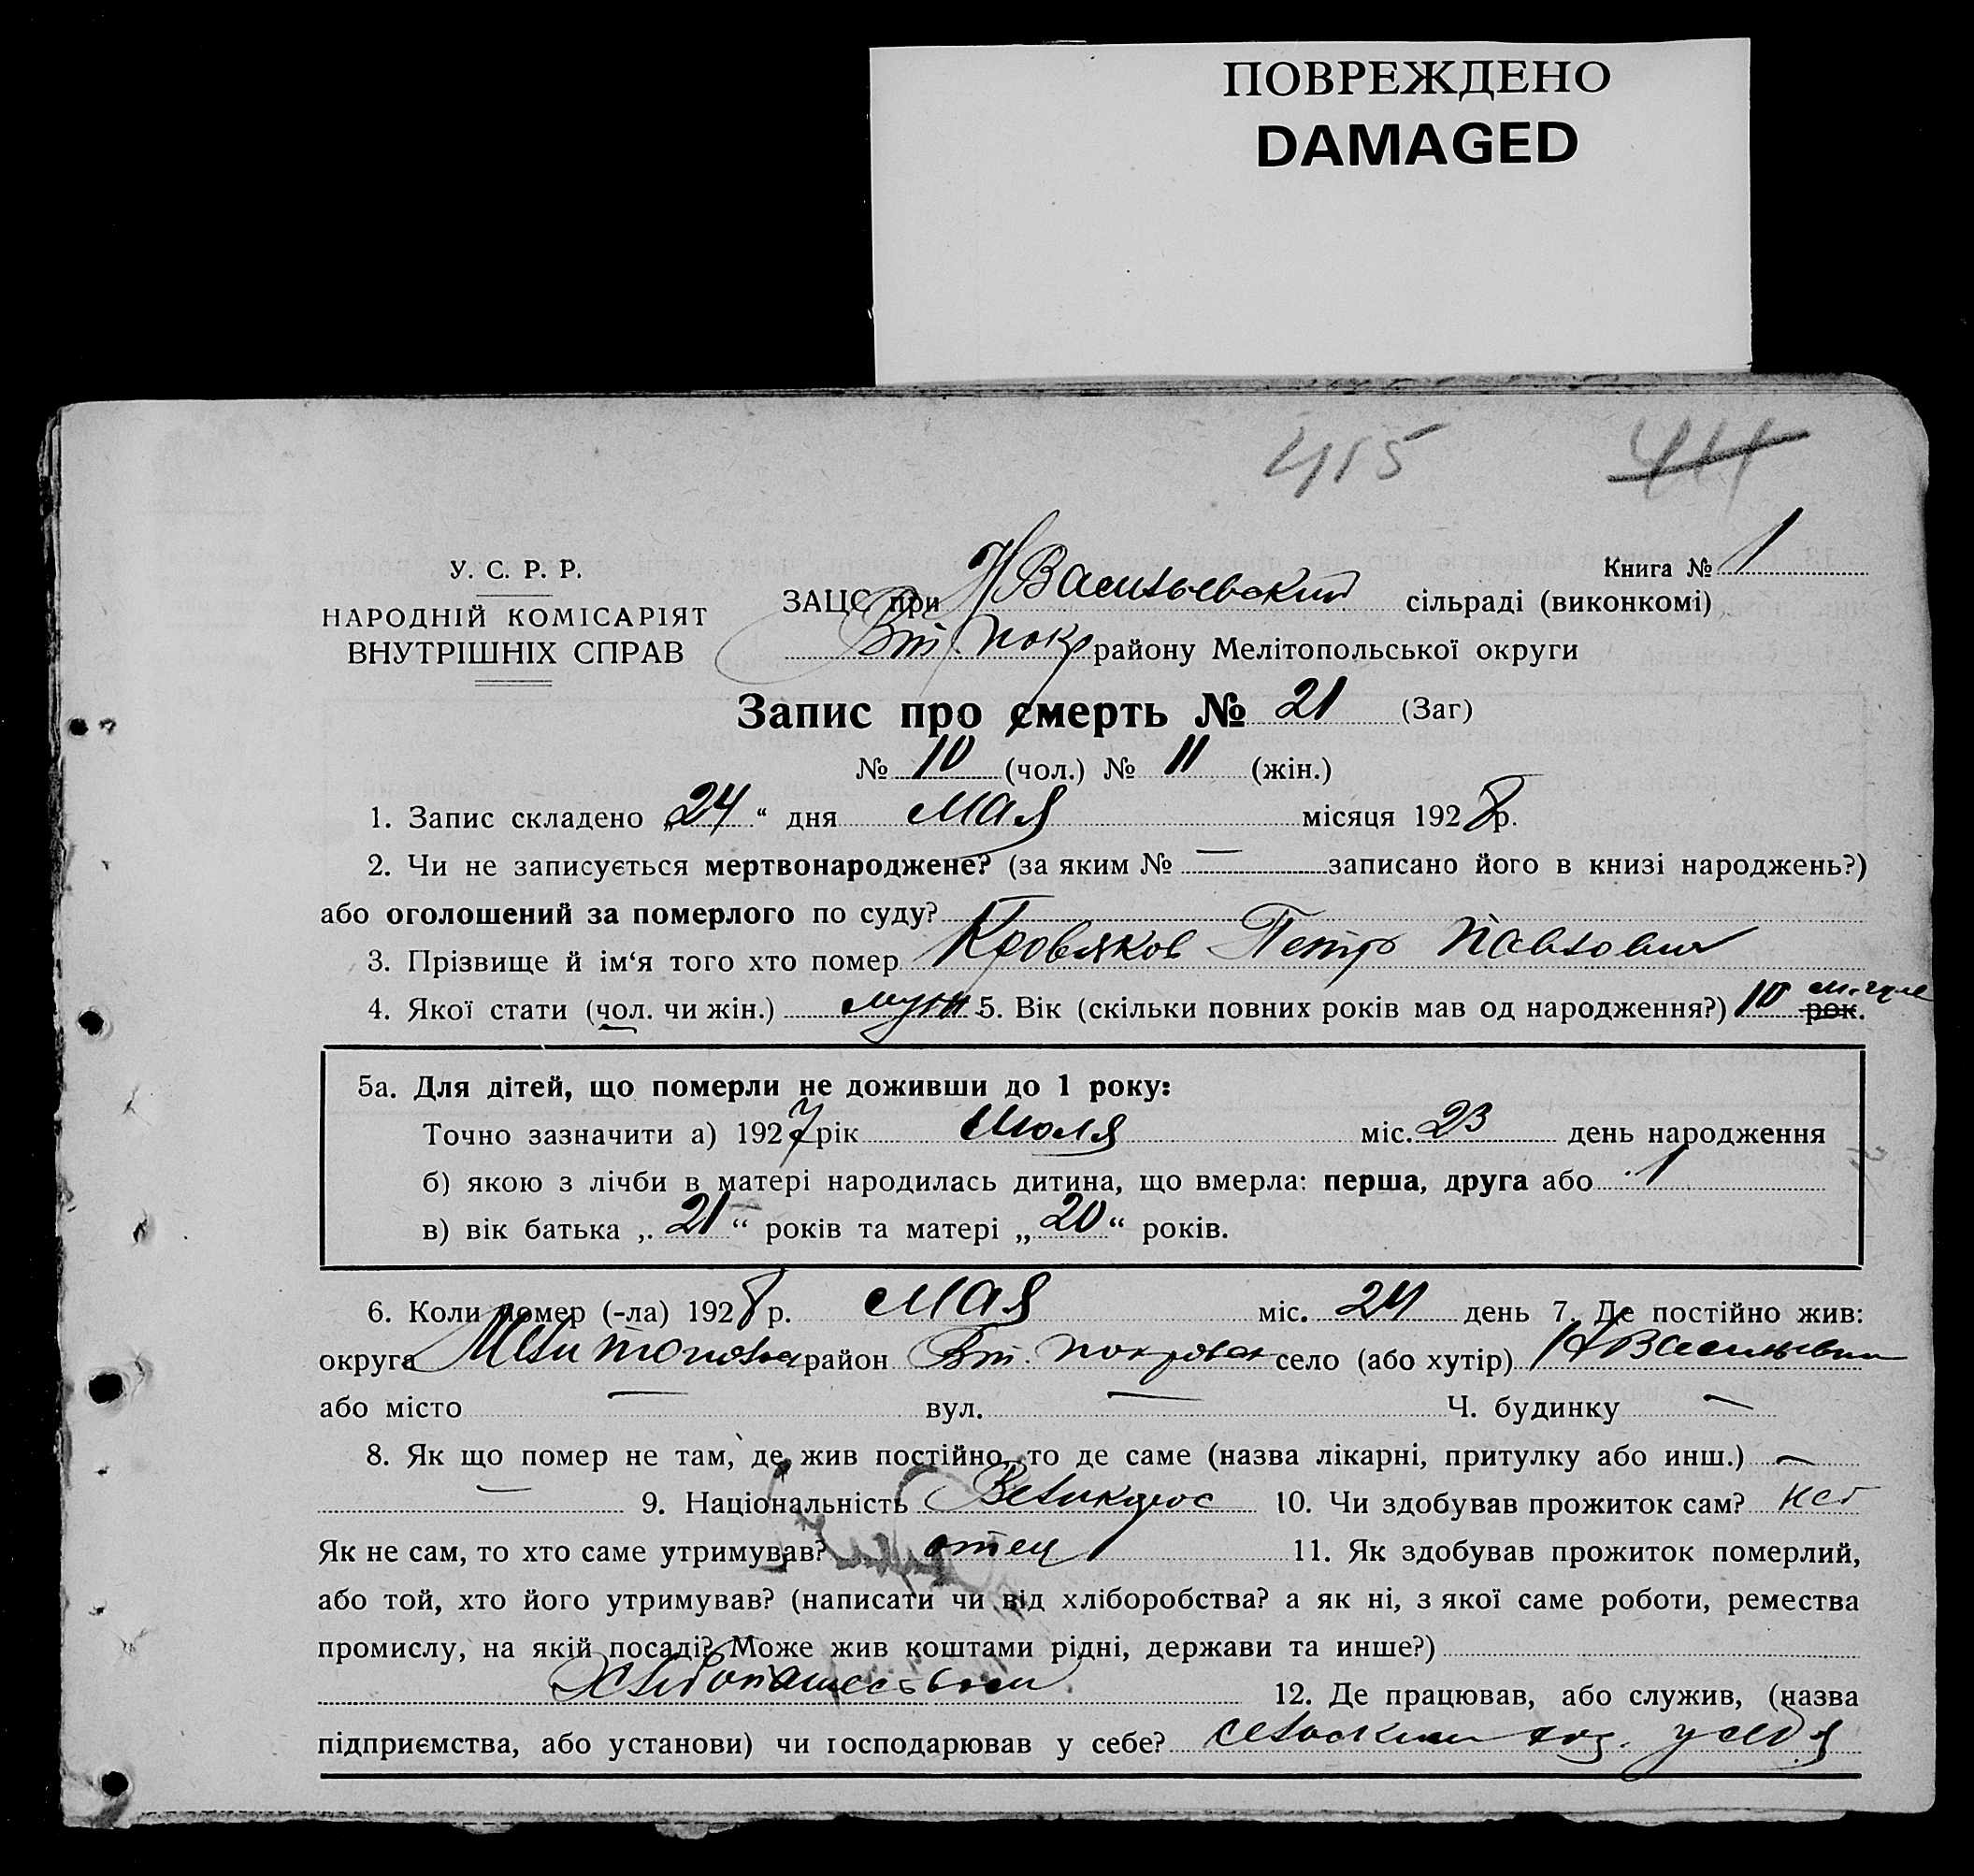 ПОВРЕЖДЕНО
DAMAGED
415 444
У. С. Р. Р.
НАРОДНІЙ КОМІСАРІЯТ
ВНУТРІШНІХ СПРАВ
Книга № 1
ЗАЦС при Н Васильевский сільраді (виконкомі)
Вт. Покр району Мелітопольської округи
Запис про смерть № 21 (Заг)
№ 10 (чол.) № 11 (жін.)
1. Запис складено „24“ дня мая місяця 1928 р.
2. Чи не записується мертвонароджене? (за яким № — записано його в книзі народжень?)
або оголошений за померлого по суду? —
3. Прізвище й ім‘я того хто помер Кровяков Петр Павлович
4. Якої стати (чол. чи жін.) муж 5. Вік (скільки повних років мав од народження?) 10 рок.
5а. Для дітей, що померли не доживши до 1 року:
Точно зазначити а) 1927 рік Июля міс. 23 день народження
б) якою з лічби в матері народилась дитина, що вмерла: перша, друга або 1
в) вік батька „21“ років та матері „20“ років.
6. Коли помер (-ла) 1928 р. мая міс. 24 день 7. Де постійно жив:
округа Мелитопольск район Вт. Покровск село (або хутір) Н Васильевка
або місто — вул. — Ч. будинку —
8. Як що помер не там, де жив постійно, то де саме (назва лікарні, притулку або инш.) —
— 9. Національність Великорос 10. Чи здобував прожиток сам? нет
Як не сам, то хто саме утримував? отец 11. Як здобував прожиток померлий,
або той, хто його утримував? (написати чи від хліборобства? а як ні, з якої саме роботи, ремества
промислу, на якій посаді? Може жив коштами рідні, держави та инше?)
Хлебопашеством 12. Де працював, або служив, (назва
підприємства, або установи) чи господарював у себе? сельским хоз. у себя